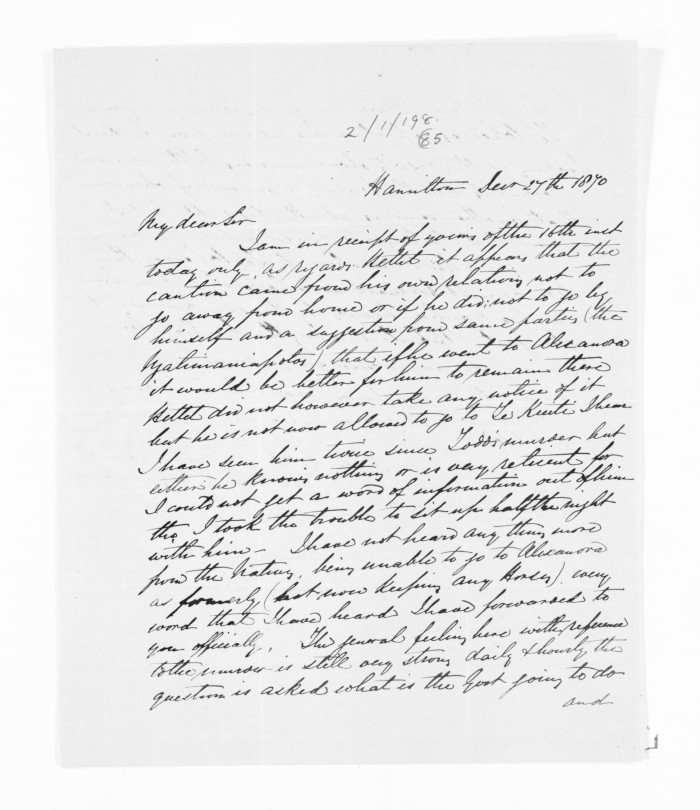 2/1/198.
E5
Hamilton Decr 27th 1870
My dear Sir
I am in receipt of yours of the 16th inst
today only, as regards Hettit it appears that the
caution came from his own relations not to
go away from home or if he did: not to go by
himself and a suggestion from same parties (the
Ngatimaniapotos), that if he went to Alexandra
it would be better for him to remain there
Hettit did not however take any notice of it
but he is not now allowed to go to Te Kuiti I hear
I have seen him twice since Todds murder but
either he knows nothing or is very reticent for
I could not get a word of information out of him
tho I took the trouble to sit up half the night
with him – I have not heard any thing more
from the Natives, being unable to go to Alexandra
as formerly (not now keeping any Horses). every
word that I have heard I have forwarded to
you officially. The general feeling here with reference
to the murder is still very strong daily & hourly the
question is asked what is the Govt going to do
and